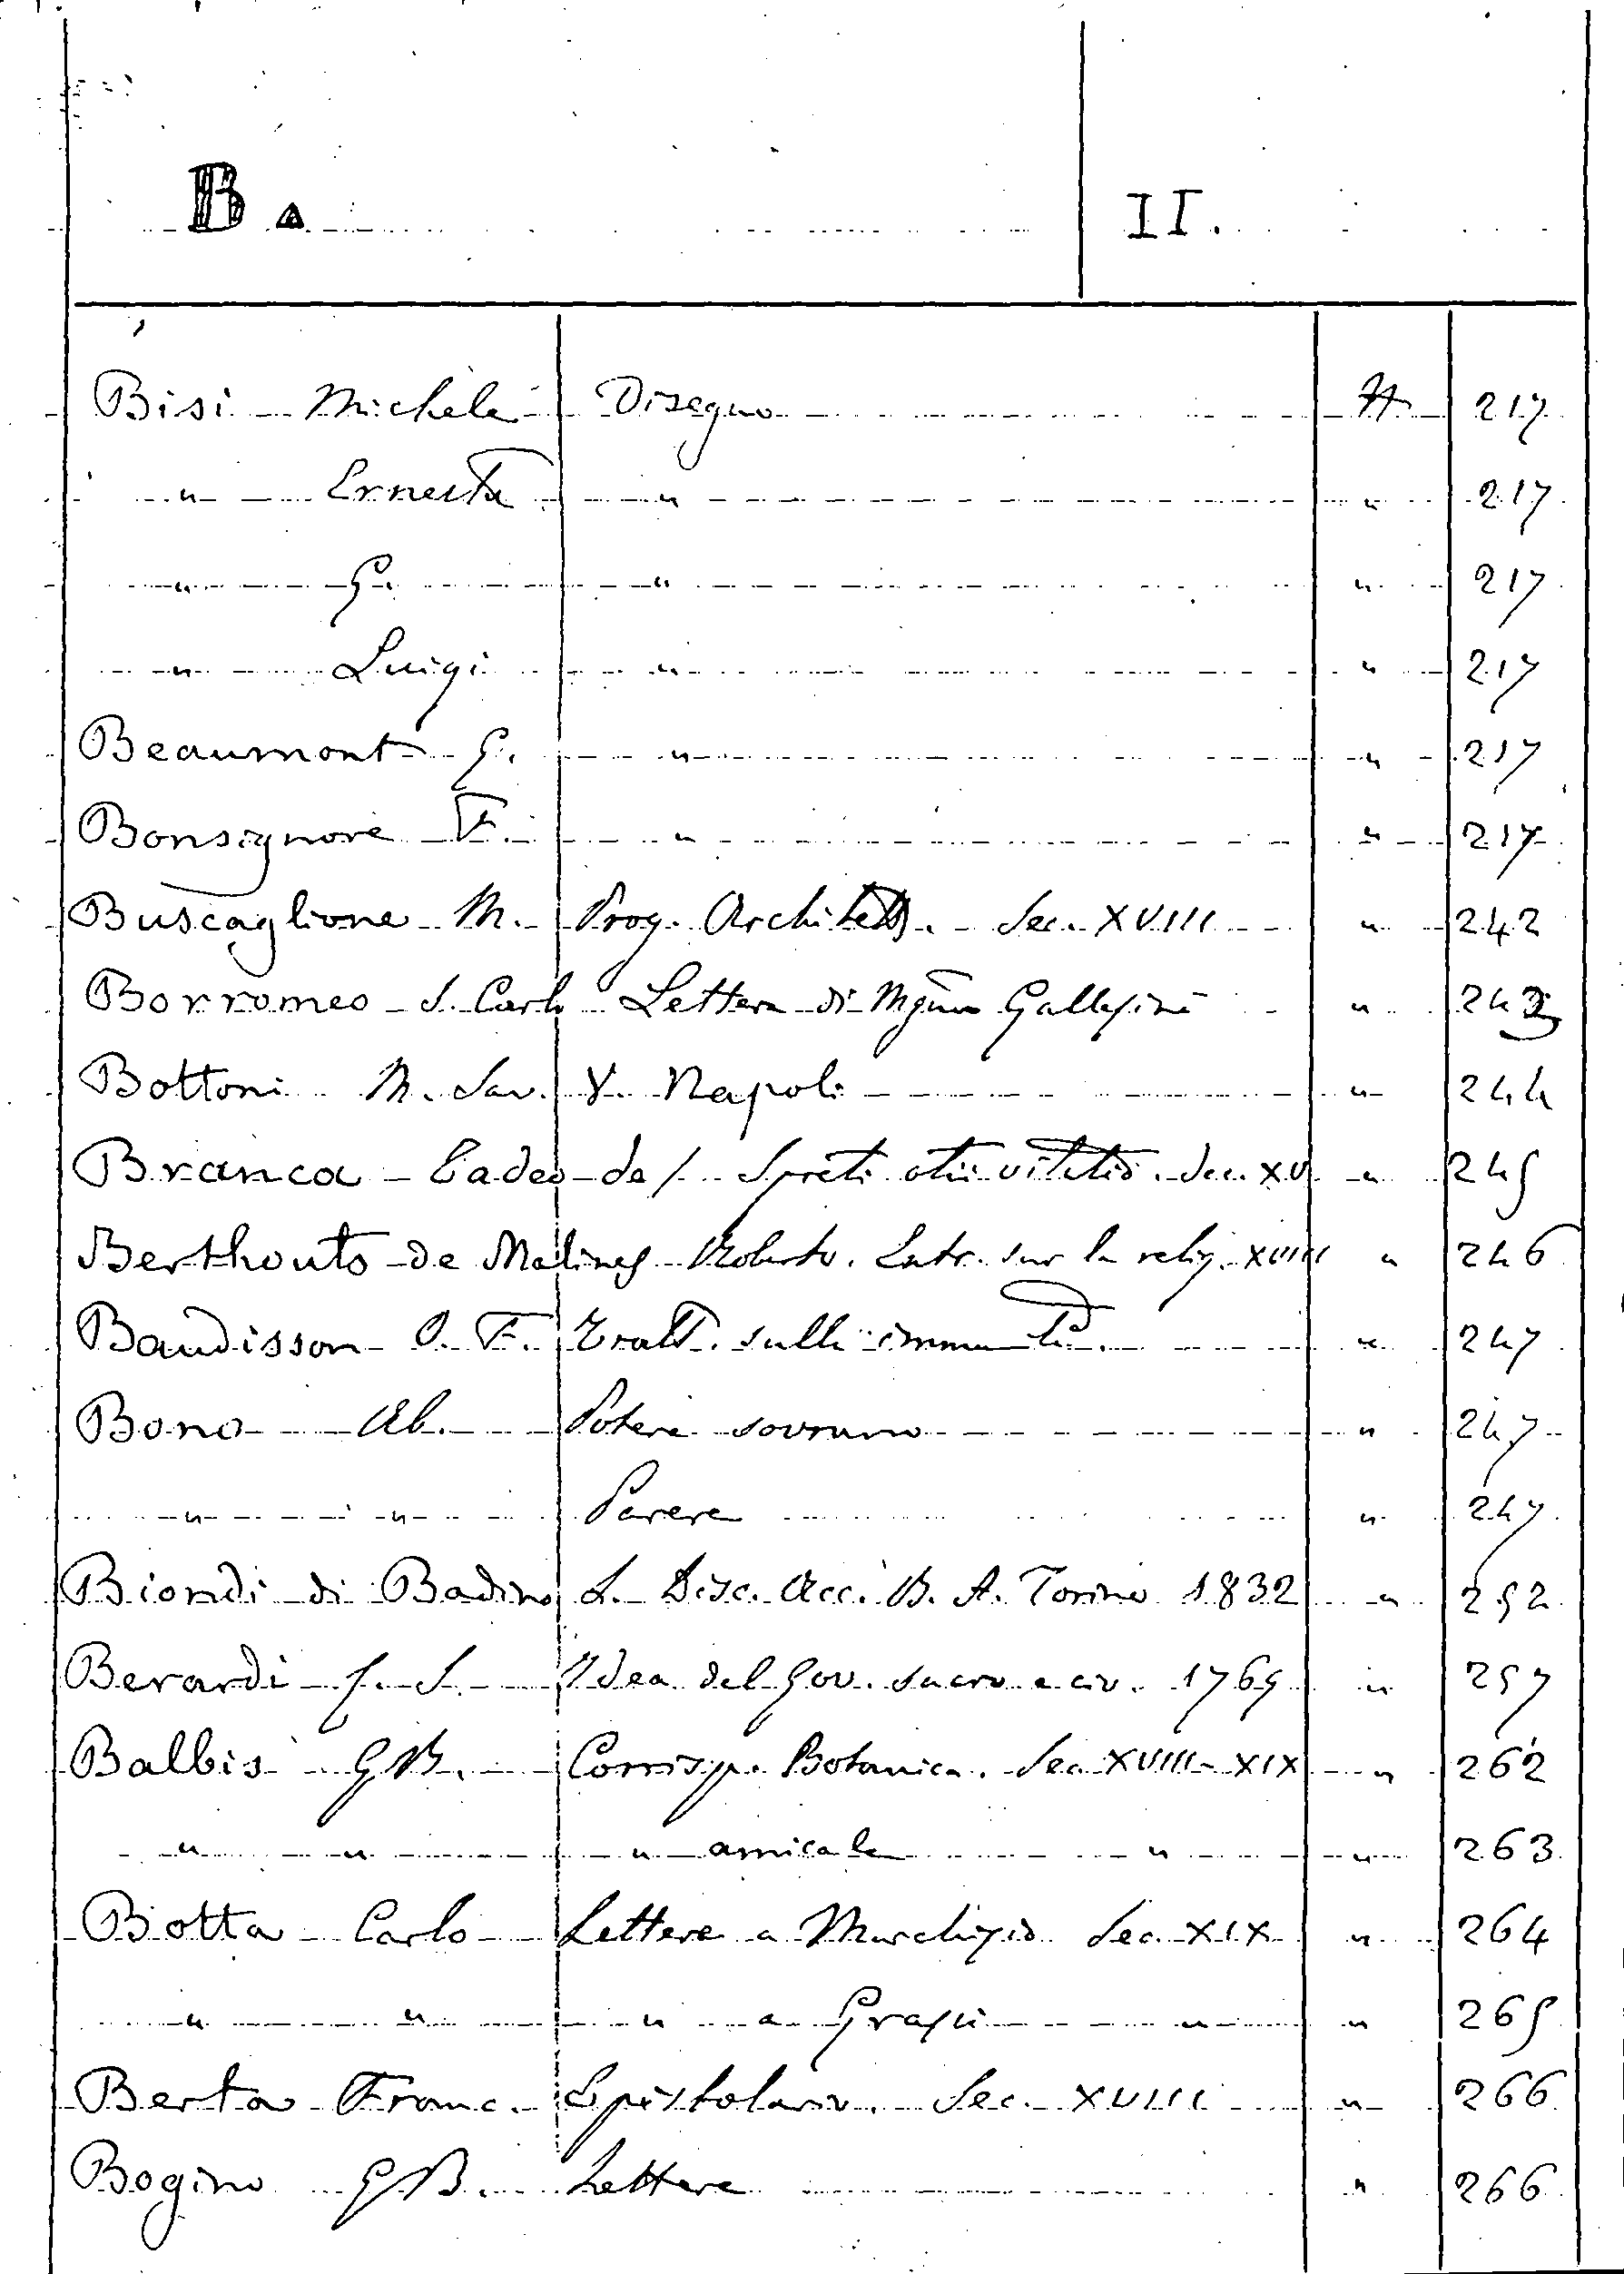 B. II.
Bisi Michele Disegno H 217
" Ernesta " " 217
" G. " " 217
" Luigi " " 217
Beaumont G. " " 217
Bonsignore F. " " 217
Buscaglione M. Prog. Architett. Sec. XVIII " 242
Borromeo S. Carlo Lettera di Mgnr " 243
Bottoni M. Sav. V. Napoli " 244
Branca Tadeo de / Spreti otii Sec. XV " 245
Berthouts de Malines Roberto. Entr. sur la relig. XVIII " 246
Baudisson I. F. Tratt. sulle " 247
Bono Ab. Potere sovrano " 247
" " Parere " 247
Biondi di Badino L. Disc. Acc. B. A. Torino 1832 " 252
Berardi f. S. Idea del Gov. sacro e civ. 1765 " 257
Balbis GB. Corrisp. Botanica. Sec XVIII-XIX " 262
" " " amicale " " 263
Botta Carlo Lettere a Marchisio Sec. XIX " 264
" " " a Grassi " " 265
Berta Franc. Epistolario. Sec. XVIII " 266
Bogino GB. Lettere " 266